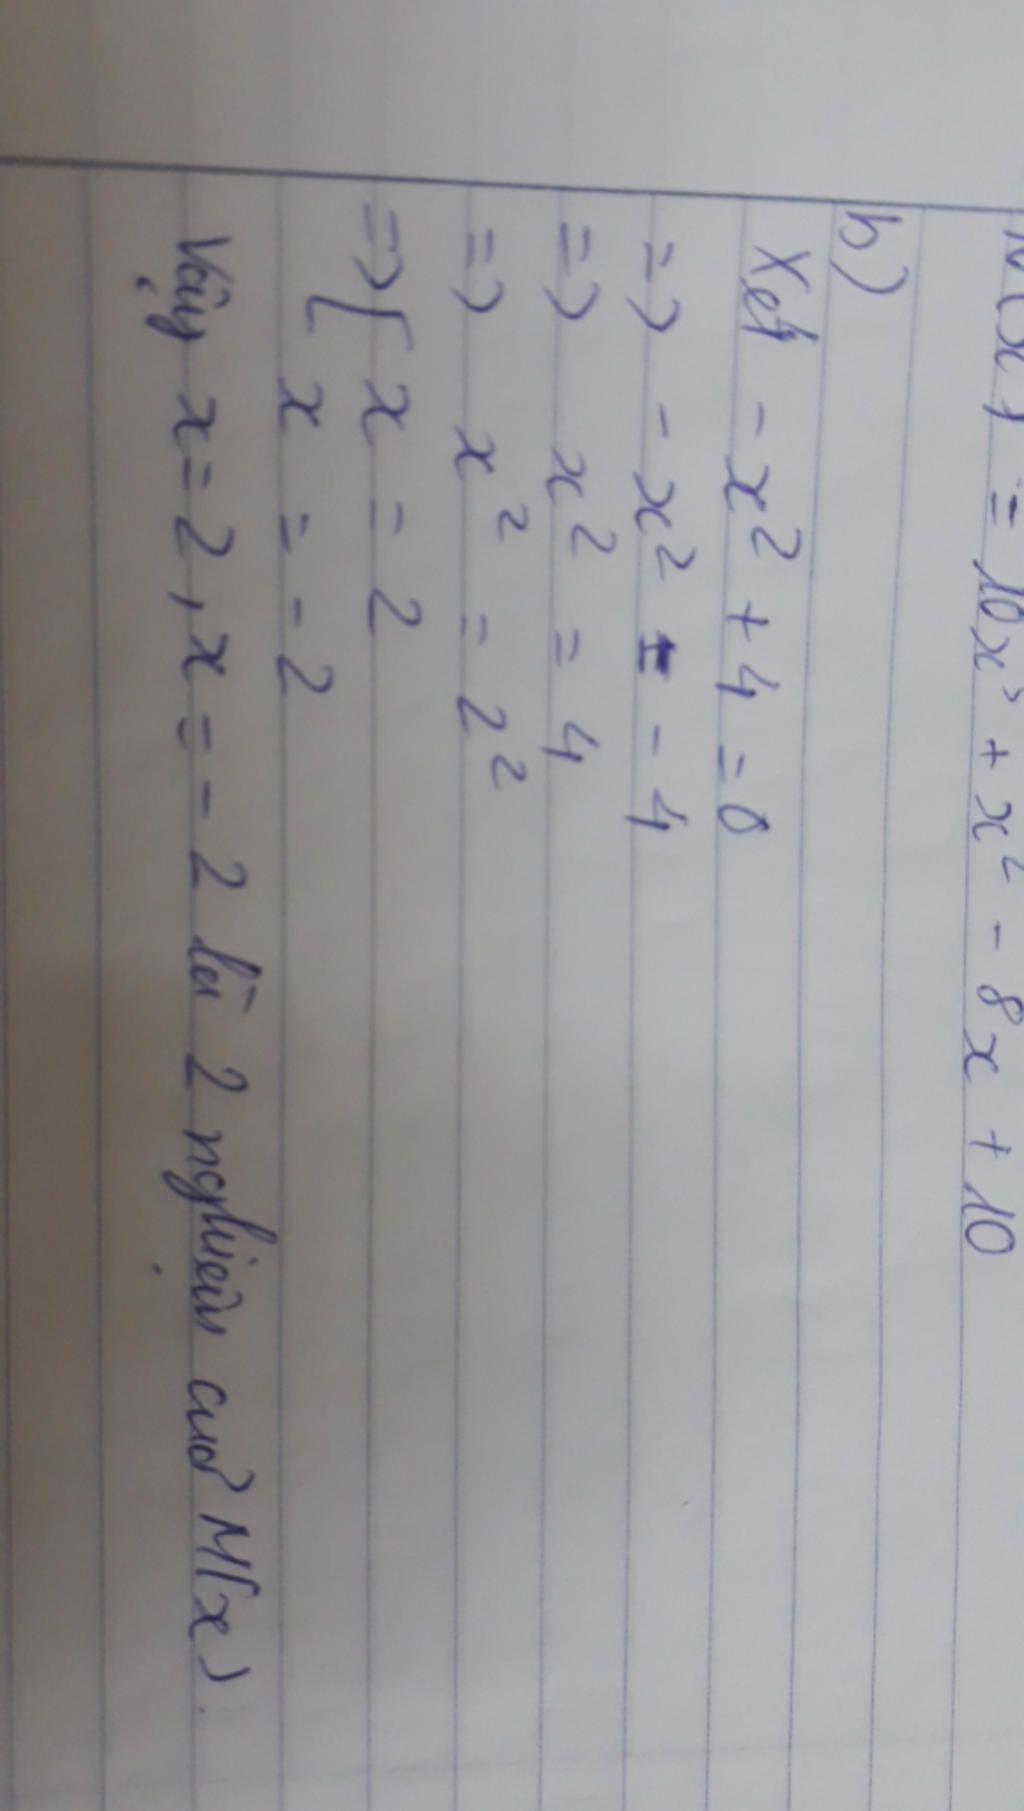 N(x) = 10x³ + x² - 8x + 10
b)
Xét -x² + 4 = 0
=> -x² = -4
=> x² = 4
=> x² = 2²
=> [ x = 2
x = -2
Vậy x = 2, x = -2 là 2 nghiệm của M(x).